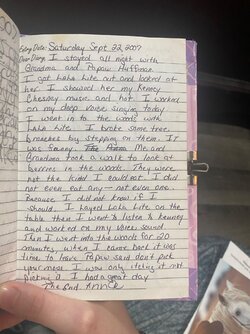 Entry Date: Saturday Sept 22, 2007
Dear Diary, I stayed all night with
Grandma and Papaw Huffman.
I got Laka Lite out and looked at
her. I showed her my Kenney
Chesney music and hot. I worked
on my deep voice singing today
I went in to the woods with
Laka Lite. I broke some tree
branches by stepping on them. It
was funny. Me and
Grandma took a walk to look at
berries in the woods. They were
not the kind I could eat. I did
not even eat any — not even one.
Because I did not know if I
should. I layed Laka Lite on the
table then I went to listen to Kenney
and worked on my voice sound
Then I went into the woods for 20
minutes, when I came back it was
time to leave. Papaw said don't pick
your nose. I was only itching it not
picking it. I had a great day
The End